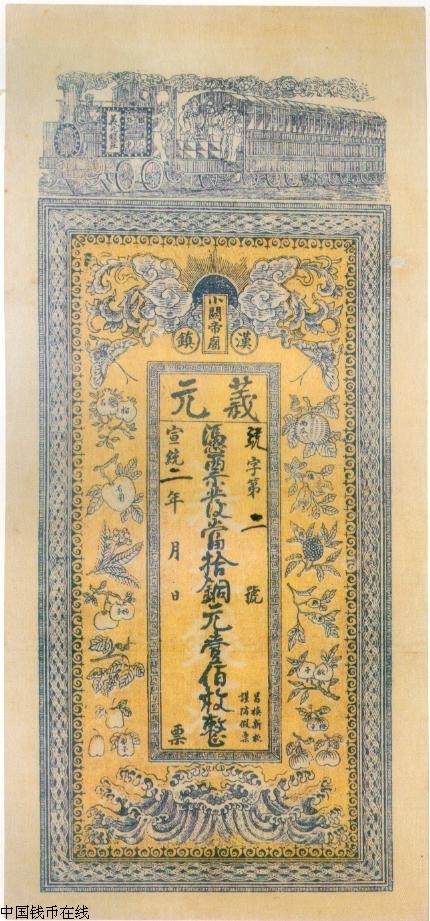 漢鎮
小關帝廟
義元
號字第二號
憑票發當拾銅元壹佰枚整
謹防假票
宣統二年 月 日
票
中国钱币在线